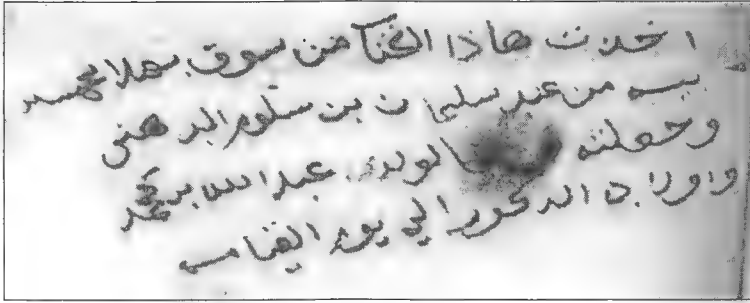 اخذت هاذا الكتا من سوق بهلا
بيسه من عند سليمان بن سلوم الدهني
وجعلته لولدي عبدالله بن محمد
واولاده الذكور الي يوم القيامه